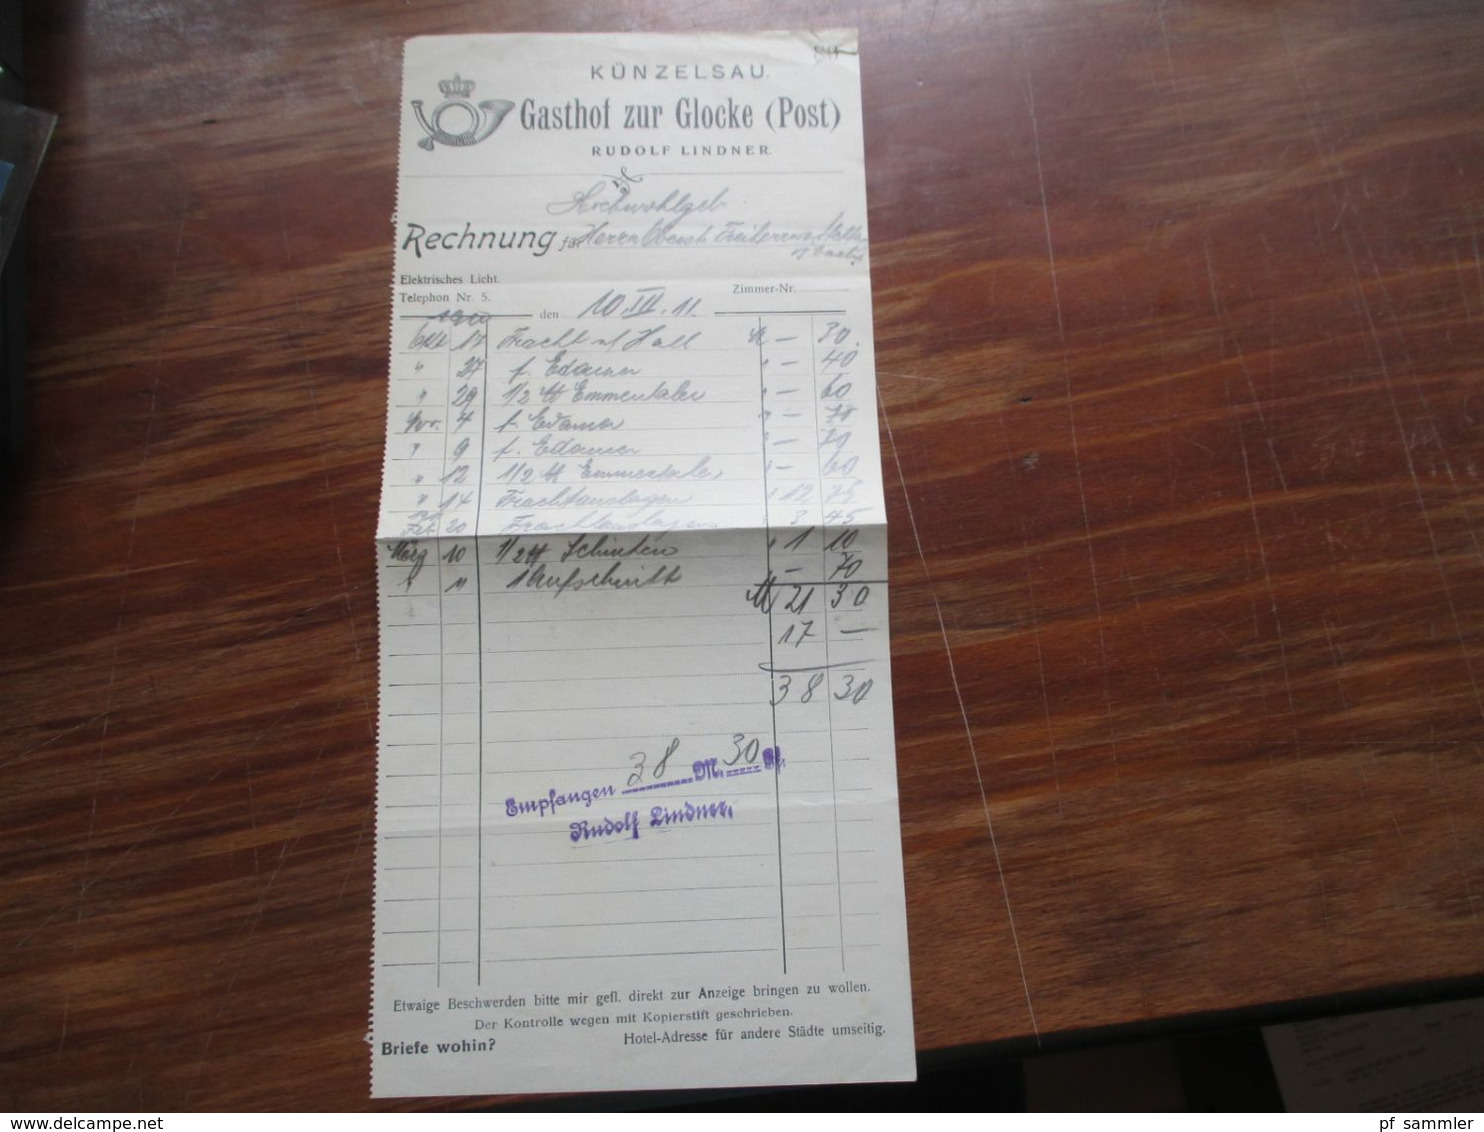 KÜNZELSAU.
Gasthof zur Glocke (Post)
RUDOLF LINDNER.
Hochwohlgeb.
Rechnung für Herrn Oberst Freiherrn
Elektrisches Licht.
Telephon Nr. 5.
Zimmer-Nr.
1910
den 10. III. 11.
17 Fracht n/ Hall M — 30.
" 27 f. Edamer " — 40
" 29 1/2 ℔ Emmentaler " — 60
Nov. 4 f. Edamer " — 70
" 9 f. Edamer " — 70
" 12 1/2 ℔ Emmentaler " — 60
" 14 Frachtauslagen " 12 75
Feb. 20 Frachtauslagen " 3 45
März 10 1/2 ℔ Schinken " 1 10
" " 1 Aufschnitt " — 70
M 21 30
17 —
38 30
Empfangen 38 M. 30 Pf.
Rudolf Lindner.
Etwaige Beschwerden bitte mir gefl. direkt zur Anzeige bringen zu wollen.
Der Kontrolle wegen mit Kopierstift geschrieben.
Briefe wohin?
Hotel-Adresse für andere Städte umseitig.
delcampe.net
pf_sammler